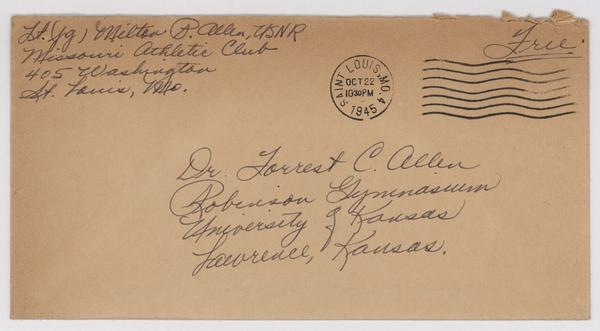 Lt. (jg) Milton P. Allen, USNR
Missouri Athletic Club
405 Washington
St. Louis, Mo.
Free.
SAINT LOUIS, MO. 4
OCT 22
1030 PM
1945
Dr. Forrest C. Allen
Robinson Gymnasium
University of Kansas
Lawrence, Kansas.